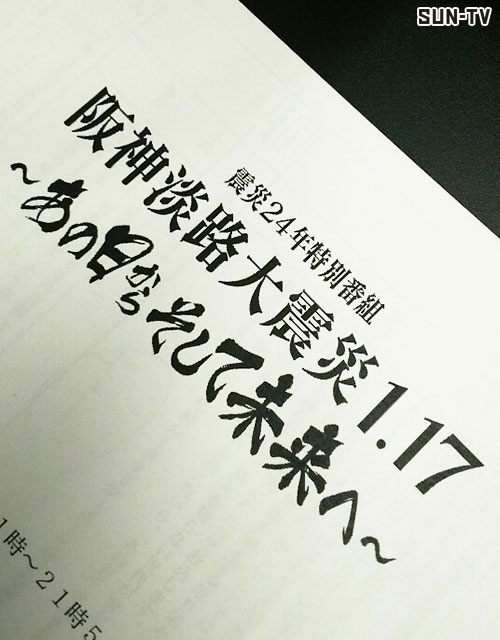 SUN-TV
震災24年特別番組
阪神淡路大震災1.17
~あの日からそして未来へ~
1時~21時5